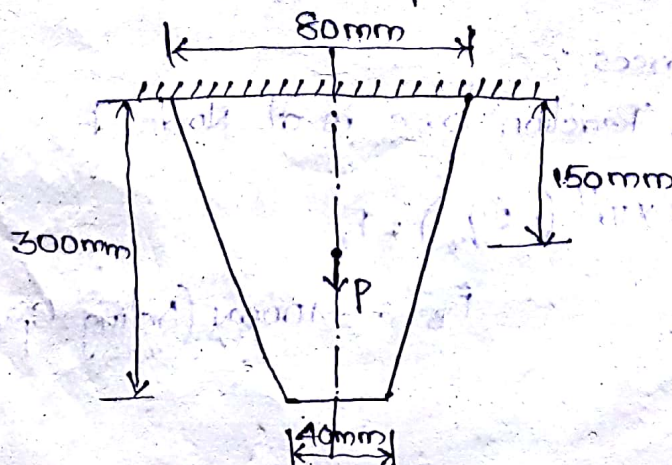 80mm
150mm
300mm
P
40mm